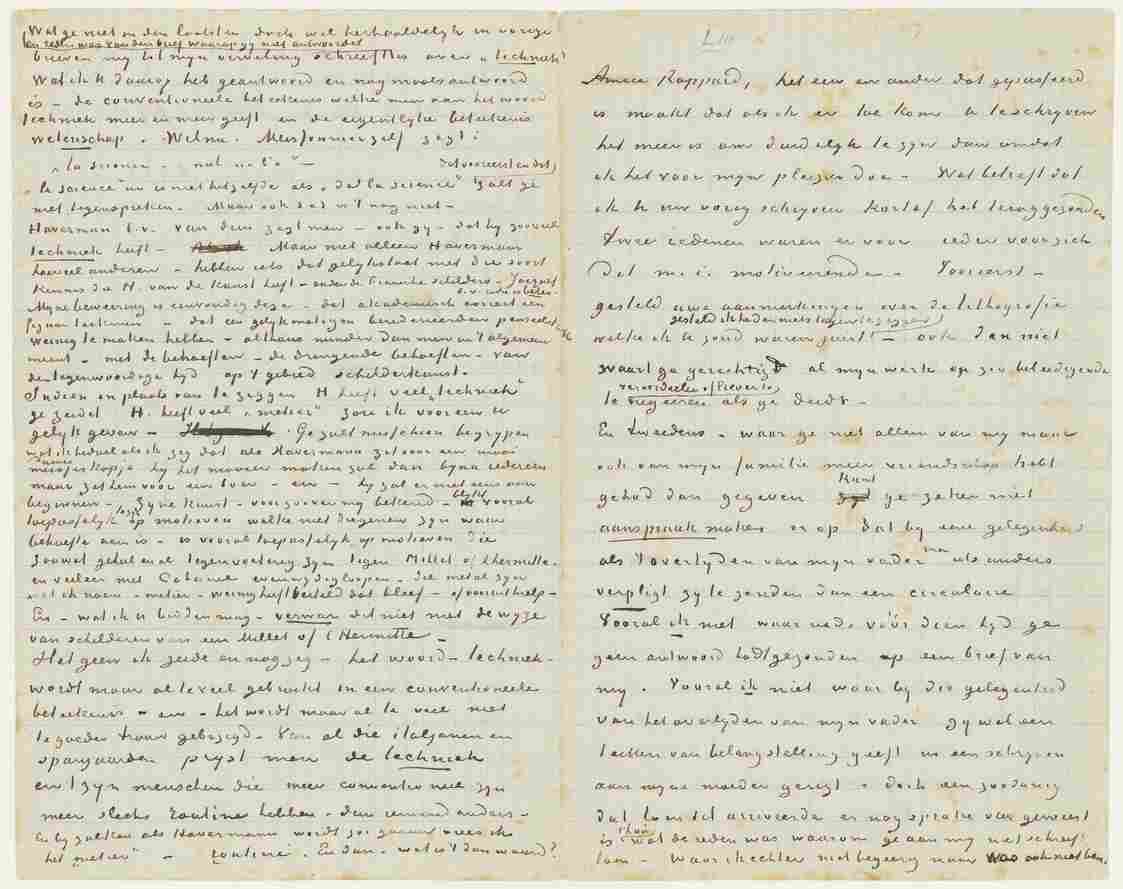 Wat ge niet in den laatsten doch wel herhaaldelyk in vorige
en reden was van den brief waarop gy niet antwoordet
brieven my tot myn verveling schreeft is over „techniek”
Wat ik U daarop heb geantwoord en nogmaals antwoord
is – de conventioneele beteekenis welke men aan het woord
techniek meer en meer geeft en de eigentlyke beteekenis
wetenschap. Welnu. Meissonnier zelf zegt:
„la science – nul ne l'a” –
„la science” nu is niet hetzelfde als „de la science” zult ge
niet tegenspreken. Maar ook dat is 't nog niet –
Haverman b.v. van dien zegt men – ook gy – dat hy zooveel
techniek heeft – Maar niet alleen Haverman
hoeveel anderen – hebben iets dat gelykstaat met die soort
kennis die H. van de kunst heeft – onder de Fransche schilders – Jacquet
Myne bewering is eenvoudig deze – dat akademisch correct een
figuur teekenen – dat een gelykmatigen beredeneerden penseelstreek
weinig te maken hebben – althans minder dan men in 't algemeen
meent – met de behoeften – de dringende behoeften – van
de tegenwoordige tyd op 't gebied schilderkunst.
Indien in plaats van te zeggen H heeft veel „techniek”
ge zeidet H. heeft veel „metier” zou ik voor eens U
gelyk geven – Ge zult misschien begrypen
wat ik bedoel als ik zeg dat als Havermann zit voor een mooi
dames
meisjeskopje hy het mooier maken zal dan byna iedereen
maar zet hem voor een boer – en – hy zal er niet eens aan
beginnen – Zyne kunst – voor zoover my bekend – blykt vooral
toepasselyk op motieven welke niet diegenen zyn waar
behoefte aan is – is vooral toepasselyk op motieven die
zoowat geheel en al tegenvoeters zyn tegen Millet of Lhermitte –
en veeleer met Cabanel evenwydig loopen –
wat ik noem – metier – weinig heeft bestaan dat bleef – of vooruithielp –
En – wat ik U bidden mag – verwar dit niet met de wyze
van schilderen van een Millet of l'Hermitte –
Het geen ik zeide en nog zeg – het woord – techniek –
wordt maar al te veel gebruikt in een conventioneele
beteekenis – en – het wordt maar al te veel niet
te goeder trouw gebezigd – Van al die italjanen en
spanjaarden pryst men de techniek
en 't zyn menschen die meer conventioneel zyn
meer slechts routine hebben – dan iemand anders –
En by zulken als Havermann wordt zoo gaauw vrees ik
het „metier” – „routine”. En dan – wat is 't dan waard?
Amice Rappard, het een en ander dat gepasseerd
is maakt dat als ik er toe kom U te schryven
het meer is om duidelyk te zyn dan omdat
ik het voor myn pleizier doe – Wat betreft dat
ik U uw vorig schryven kortaf heb teruggezonden
twee redenen waren er voor ieder voor zich
dat m.i. motiveerende – Vooreerst –
gesteld uwe aanmerkingen over de lithografie
gesteld ik had er niets tegen te zeggen
welke ik U zond waren juist – ook dan niet
waart ge gerechtigd al myn werk op zoo beleedigende
te veroordeelen of liever te
negeeren als ge deedt –
En tweedens – waar ge niet alleen van my maar
ook van myn familie meer vriendschap hebt
gehad dan gegeven kunt ge zeker niet
aanspraak maken er op dat by eene gelegenheid
als 't overlyden van myn vader was we anders
verpligt zyn te zenden dan een circulaire
Vooral ik niet waar nadat vóór dien tyd ge
geen antwoord hadt gezonden op een brief van
my. Vooral ik niet waar by die gelegenheid
van het overlyden van myn vader gy wel een
teeken van belangstelling geeft in een schryven
aan myne moeder gerigt – doch een zoodanig
dat toen het arriveerde er nog sprake van geweest
is thuis wat de reden was waarom ge aan my niet schreeft
toen – Waar ik echter niet begeerig naar was ook niet ben.